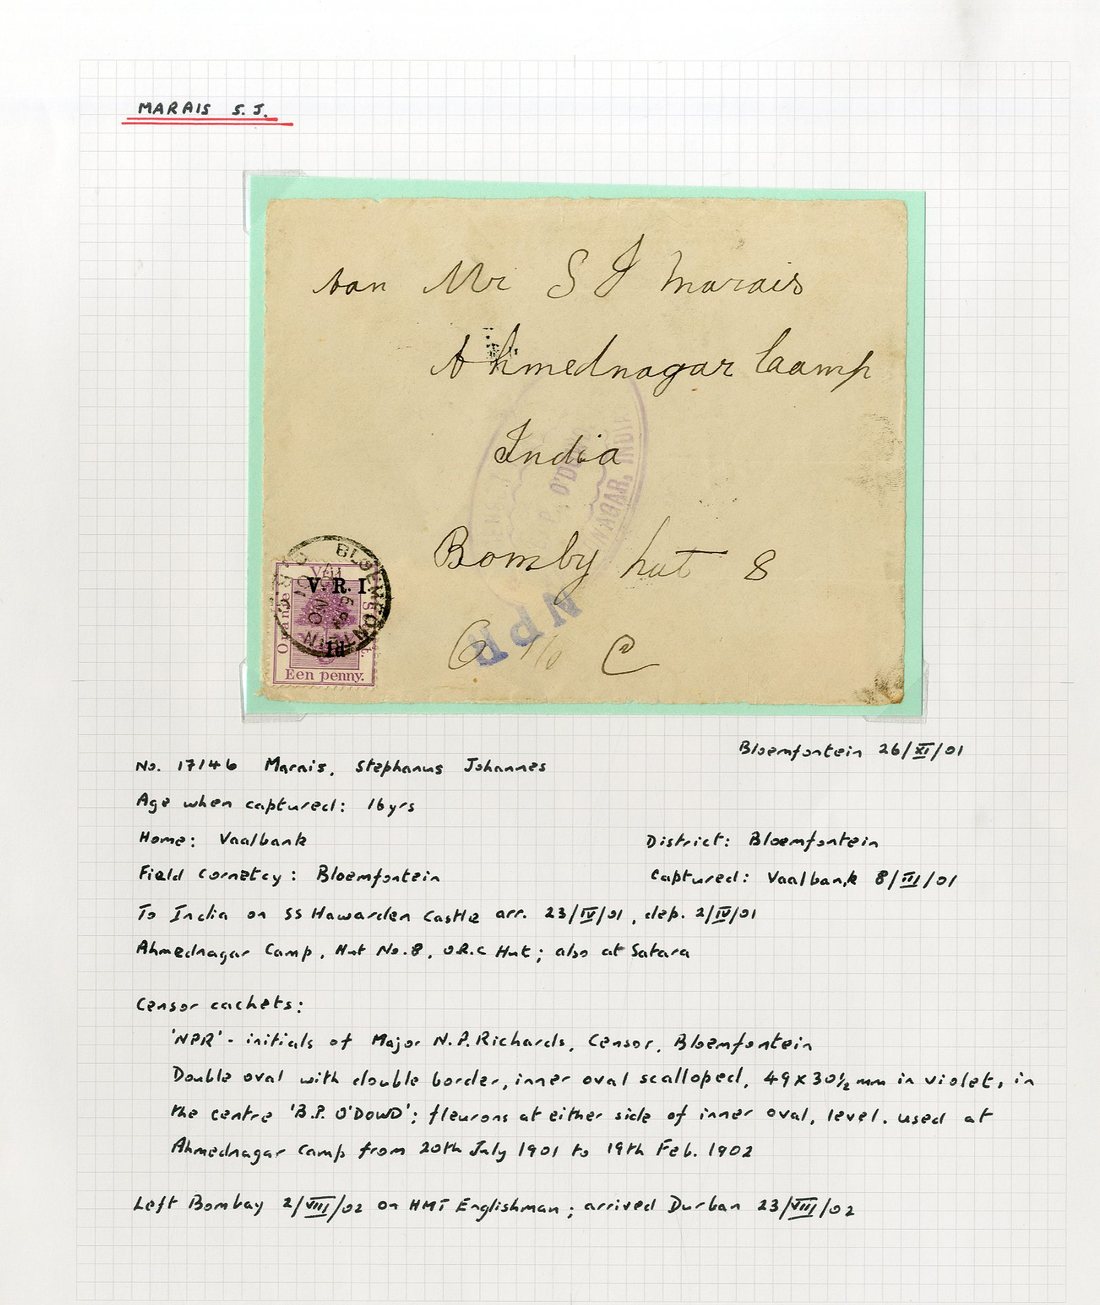 MARAIS S.J.
Aan Mr S J Marais
Ahmednagar Caamp
India
O'DOWD
NAGAR, INDIA
Bomby hut 8
NPR
O C
BLOEMFONTEIN
V.R.I.
Een penny.
Bloemfontein 26/XI/01
No. 17146 Marais, Stephanus Johannes
Age when captured: 16yrs
Home: Vaalbank District: Bloemfontein
Field Cornetcy: Bloemfontein Captured: Vaalbank 8/III/01
To India on SS Hawarden Castle arr. 23/IV/01, dep. 2/IV/01
Ahmednagar Camp, Hut No. 8, O.R.C Hut; also at Satara
Censor cachets:
'NPR' - initials of Major N.P. Richards, Censor, Bloemfontein
Double oval with double border, inner oval scalloped, 49 x 30½ mm in violet, in
the centre 'B.P. O'DOWD'; fleurons at either side of inner oval, level. used at
Ahmednagar Camp from 20th July 1901 to 19th Feb. 1902
Left Bombay 2/VIII/02 on HMT Englishman; arrived Durban 23/VIII/02